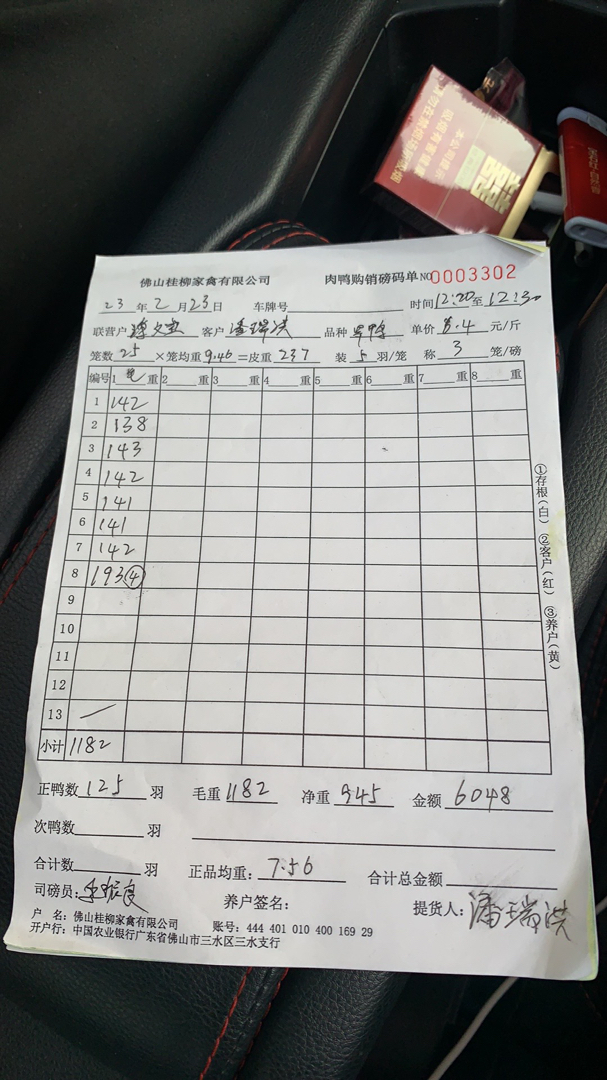 佛山桂柳家禽有限公司 肉鸭购销磅码单 NO 0003302
23 年 2 月 23 日 车牌号 时间 12:20 至 12:30
联营户 客户 潘瑞洪 品种 单价 6.4 元/斤
笼数 25 ×笼均重 9.46 =皮重 237 装 5 羽/笼 称 3 笼/磅
编号 1 毛 重 2 重 3 重 4 重 5 重 6 重 7 重 8 重
1 142
2 138
3 143
4 142
5 141
6 141
7 142
8 193 ④
9
10
11
12
13 —
小计 1182
①存根(白) ②客户(红) ③养户(黄)
正鸭数 125 羽 毛重 1182 净重 945 金额 6048
次鸭数 羽
合计数 羽 正品均重: 7.56 合计总金额
司磅员: 养户签名: 提货人: 潘瑞洪
户 名: 佛山桂柳家禽有限公司 账号: 444 401 010 400 169 29
开户行: 中国农业银行广东省佛山市三水区三水支行